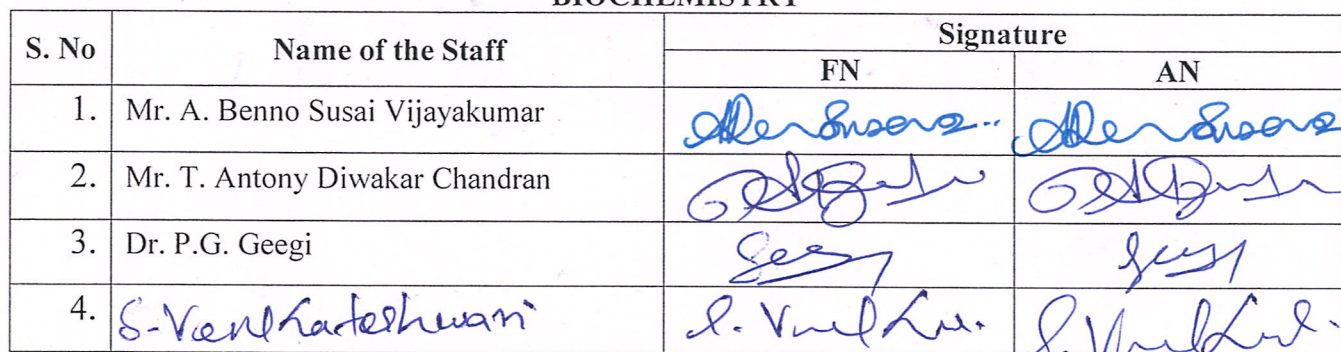 BIOCHEMISTRY
S. No Name of the Staff Signature
FN AN
1. Mr. A. Benno Susai Vijayakumar
2. Mr. T. Antony Diwakar Chandran
3. Dr. P.G. Geegi
4. S. Venkateshwari